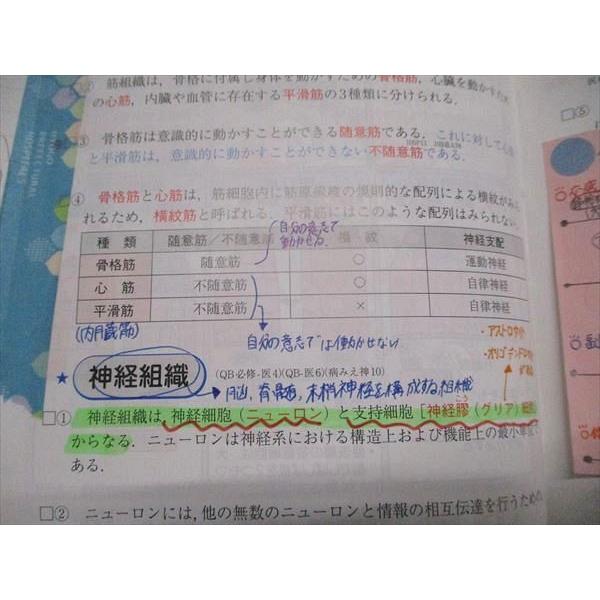 ② 筋組織は，骨格に付属し身体を動かすための骨格筋，心臓を動かすため
の心筋，内臓や血管に存在する平滑筋の3種類に分けられる．
③ 骨格筋は意識的に動かすことができる随意筋である．これに対して心筋
と平滑筋は，意識的に動かすことができない不随意筋である．
④ 骨格筋と心筋は，筋細胞内に筋原線維の規則的な配列による横紋がみら
れるため，横紋筋と呼ばれる．平滑筋にはこのような配列はみられない．
自分の意志で
動かせる．
種類 随意筋／不随意筋 横紋 神経支配
骨格筋 随意筋 ○ 運動神経
心筋 不随意筋 ○ 自律神経
平滑筋 不随意筋 × 自律神経
(内臓筋)
自分の意志では働かせない
・アストロサイト
・オリゴデンドロサイト
★ 神経組織 (QB必修-医4)(QB-医6)(病みえ神10)
脳，脊髄，末梢神経を構成する組織
□① 神経組織は，神経細胞（ニューロン）と支持細胞［神経膠（グリア）細胞］
からなる．ニューロンは神経系における構造上および機能上の最小単位で
ある．
□② ニューロンには，他の無数のニューロンと情報の相互伝達を行うための
□⑤